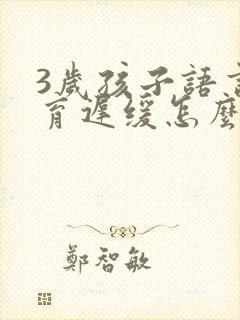 3歲孩子語言
育遲缓怎麼
鄭智敏